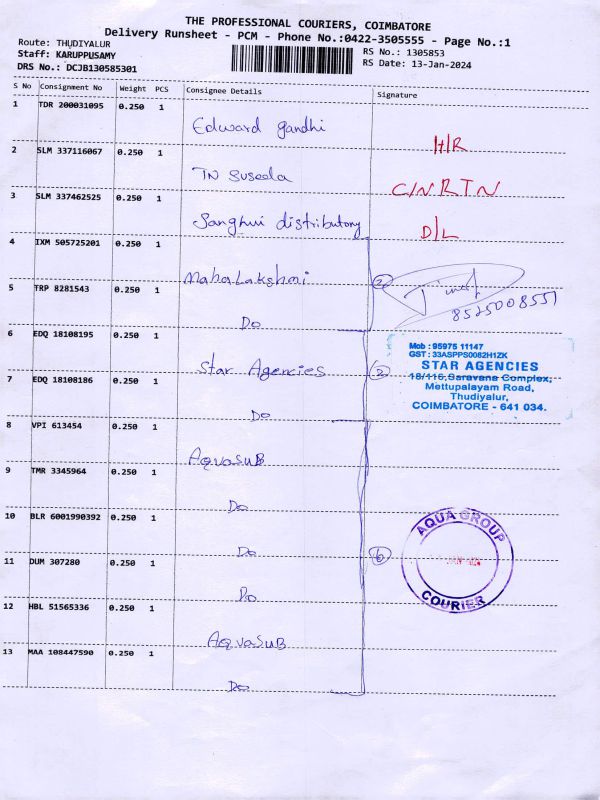 THE PROFESSIONAL COURIERS, COIMBATORE
Delivery Runsheet - PCM - Phone No.:0422-3505555 - Page No.:1
Route: THUDIYALUR
Staff: KARUPPUSAMY
DRS No.: DCJB130585301
RS No.: 1305853
RS Date: 13-Jan-2024
S No Consignment No Weight PCS Consignee Details Signature
1 TDR 200031095 0.250 1
Edward gandhi H/R
2 SLM 337116067 0.250 1
TN Suseela C/N RTN
3 SLM 337462525 0.250 1
Sanghvi distributory D/L
4 IXM 505725201 0.250 1
MahaLakshmi 2
5 TRP 8281543 0.250 1
8525008551
Do
6 EDQ 18108195 0.250 1
Star Agencies 2
Mob : 95975 11147
GST : 33ASPPS0082H1ZK
STAR AGENCIES
18/116,Saravana Complex,
Mettupalayam Road,
Thudiyalur,
COIMBATORE - 641 034.
7 EDQ 18108186 0.250 1
Do
8 VPI 613454 0.250 1
AQUASUB
9 TMR 3345964 0.250 1
Do
10 BLR 6001990392 0.250 1
Do 6
AQUA GROUP
COURIER
11 DUM 307280 0.250 1
Do
12 HBL 51565336 0.250 1
AQUASUB
13 MAA 108447590 0.250 1
Do